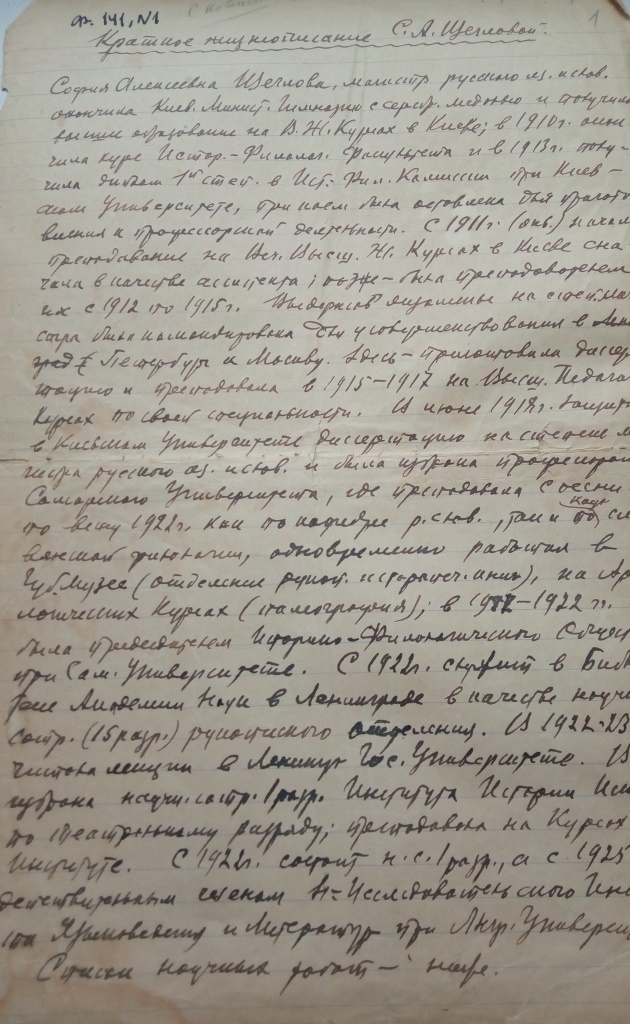 ф. 141, N1
1
Краткое жизнеописание С. А. Щегловой.
София Алексеевна Щеглова, магистр русского яз. и слов.
окончила Киев. Минист. Гимназию с сереб. медалью и получила
высшее образование на В. Ж. Курсах в Киеве; в 1910 г. окон
чила курс Истор.-Филолог. факультета и в 1913 г. полу-
чила диплом 1ой степ. в Ист.-Фил. Комиссии при Киев-
ском Университете, при коем была оставлена для пригото
вления к профессорской деятельности. С 1911 г. (янв.) начала
преподавание на Веч. Высш. Ж. Курсах в Киеве сна
чала в качестве ассистента; позже – была преподавателем
их с 1912 по 1915 г. Выдержав экзамены на степ. маг
стра была командирована для усовершенствования в Лен
град Петербург и Москву. Здесь – приготовила диссер
тацию и преподавала в 1915–1917 на Высш. Педаго
Курсах по своей специальности. В июне 1918 г. защити
в Киевском Университете диссертацию на степень м
гистра русского яз. и слов. и была избрана профессором
Самарского Университета, где преподавала с осени
по весну 1922 г. как по кафедре р. слов., так и по сла
вянской филологии, одновременно работая в
Губ. Музее (отделение рукоп. и старопеч. книг), на Ар
логических Курсах (палеография); в 19–1922 гг.
была председателем Историко-Филологического Общес
при Сам. Университете. С 1922 г. служит в Биб
теке Академии Наук в Ленинграде в качестве научн
сотр. (15 разр.) рукописного отделения. В 1922-23
читала лекции в Ленингр. Гос. Университете. В
избрана научн. сотр. I разр. Института Истории Иск
по театральному разряду; преподавала на Курсах
Институте. С 1922 г. состоит н. с. I разр., а с 1925
действительным членом Н-Исследовательского Инс
та Языковедения и Литератур при Лнгр. Универси
Списки научных работ –